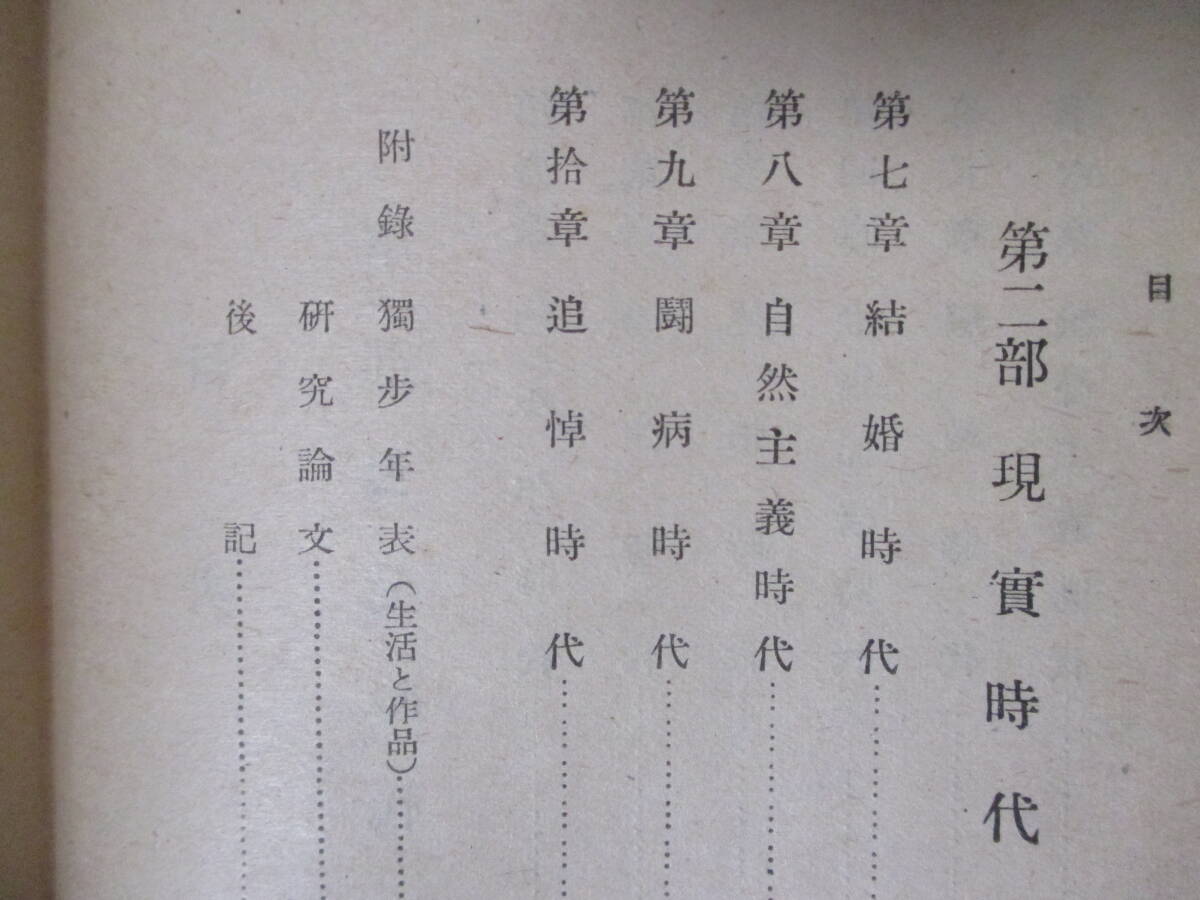 目次
第二部 現實時代
第七章 結婚時代……
第八章 自然主義時代……
第九章 鬪病時代……
第拾章 追悼時代……
附錄 獨步年表（生活と作品）……
研究論文……
後記……